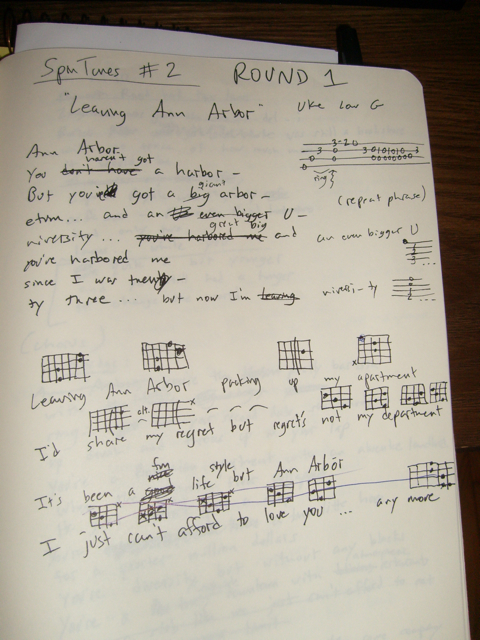 SpinTunes #2 ROUND 1
"Leaving Ann Arbor" Uke Low G
Ann Arbor
haven't got
You don't have a harbor -
giant
But you've got a big arbor -
etum... and an even bigger U -
great big
niversity ... you're harbored me and
you're harbored me
since I was twenty -
ty three ... but now I'm leaving
ring
(repeat phrase)
an even bigger U
niversi - ty
Leaving Ann Arbor packing up my apartment
alt.
I'd share my regret but regret's not my department
fun style
It's been a life but Ann Arbor
I just can't afford to love you ... any more